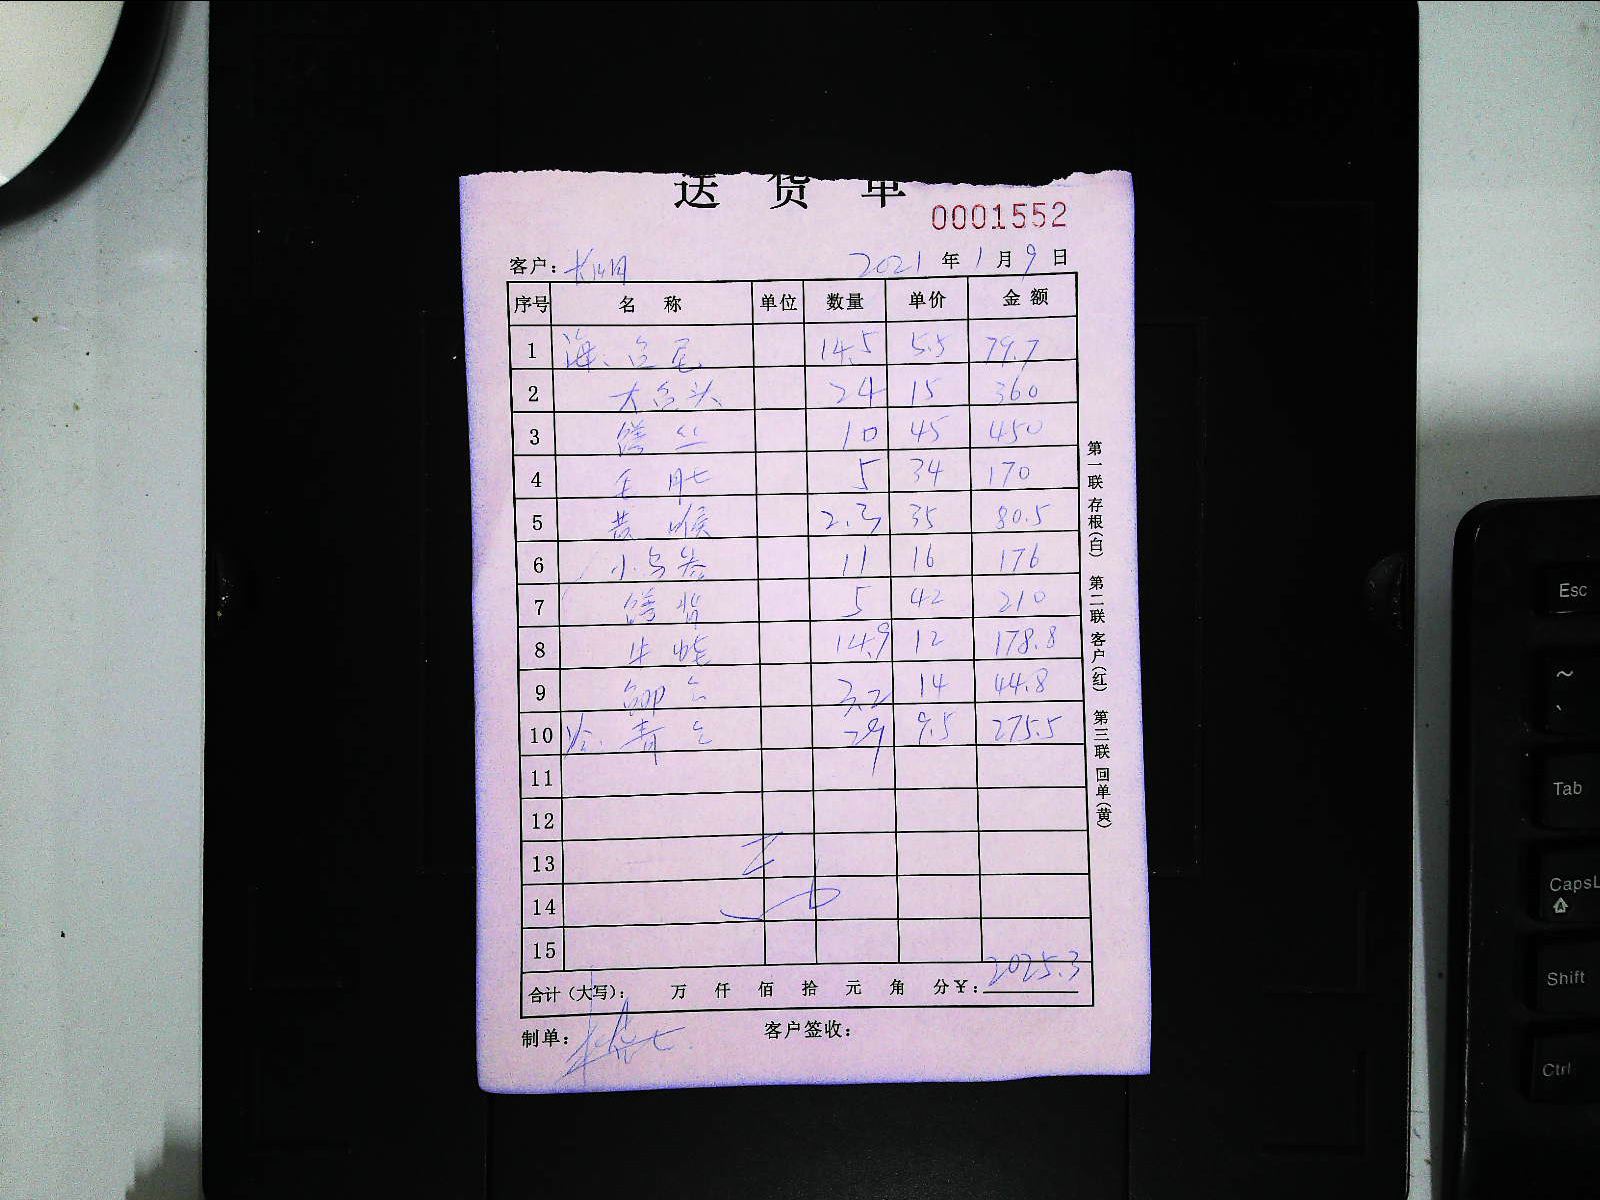 送货单
0001552
客户： 2021年1月9日
序号 名称 单位 数量 单价 金额
1 海. 鱼尾 14.5 5.5 79.7
2 大鱼头 24 15 360
3 鳝丝 10 45 450
4 毛肚 5 34 170
5 黄喉 2.3 35 80.5
6 小乌卷 11 16 176
7 鳝背 5 42 210
8 牛蛙 14.9 12 178.8
9 鲫鱼 3.2 14 44.8
10 青鱼 29 9.5 275.5
11
12
13
14
15
合计（大写）： 万 仟 佰 拾 元 角 分 ¥：2025.3
制单： 客户签收：
第一联存根（白） 第二联客户（红） 第三联回单（黄）
Esc
~
`
Tab
CapsL
Shift
Ctrl